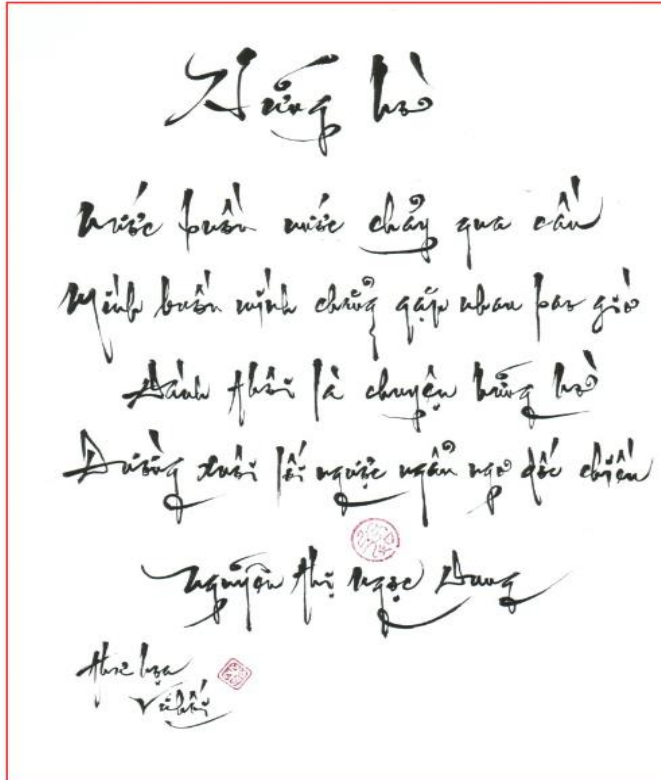 Hững hờ
Nước buồn nước chảy qua cầu
Mình buồn mình chẳng gặp nhau bao giờ
Đành thôi là chuyện hững hờ
Đường xuôi lối ngược ngẩn ngơ dốc chiều
Nguyễn Thị Ngọc Dung
Thư họa
Vũ Hối